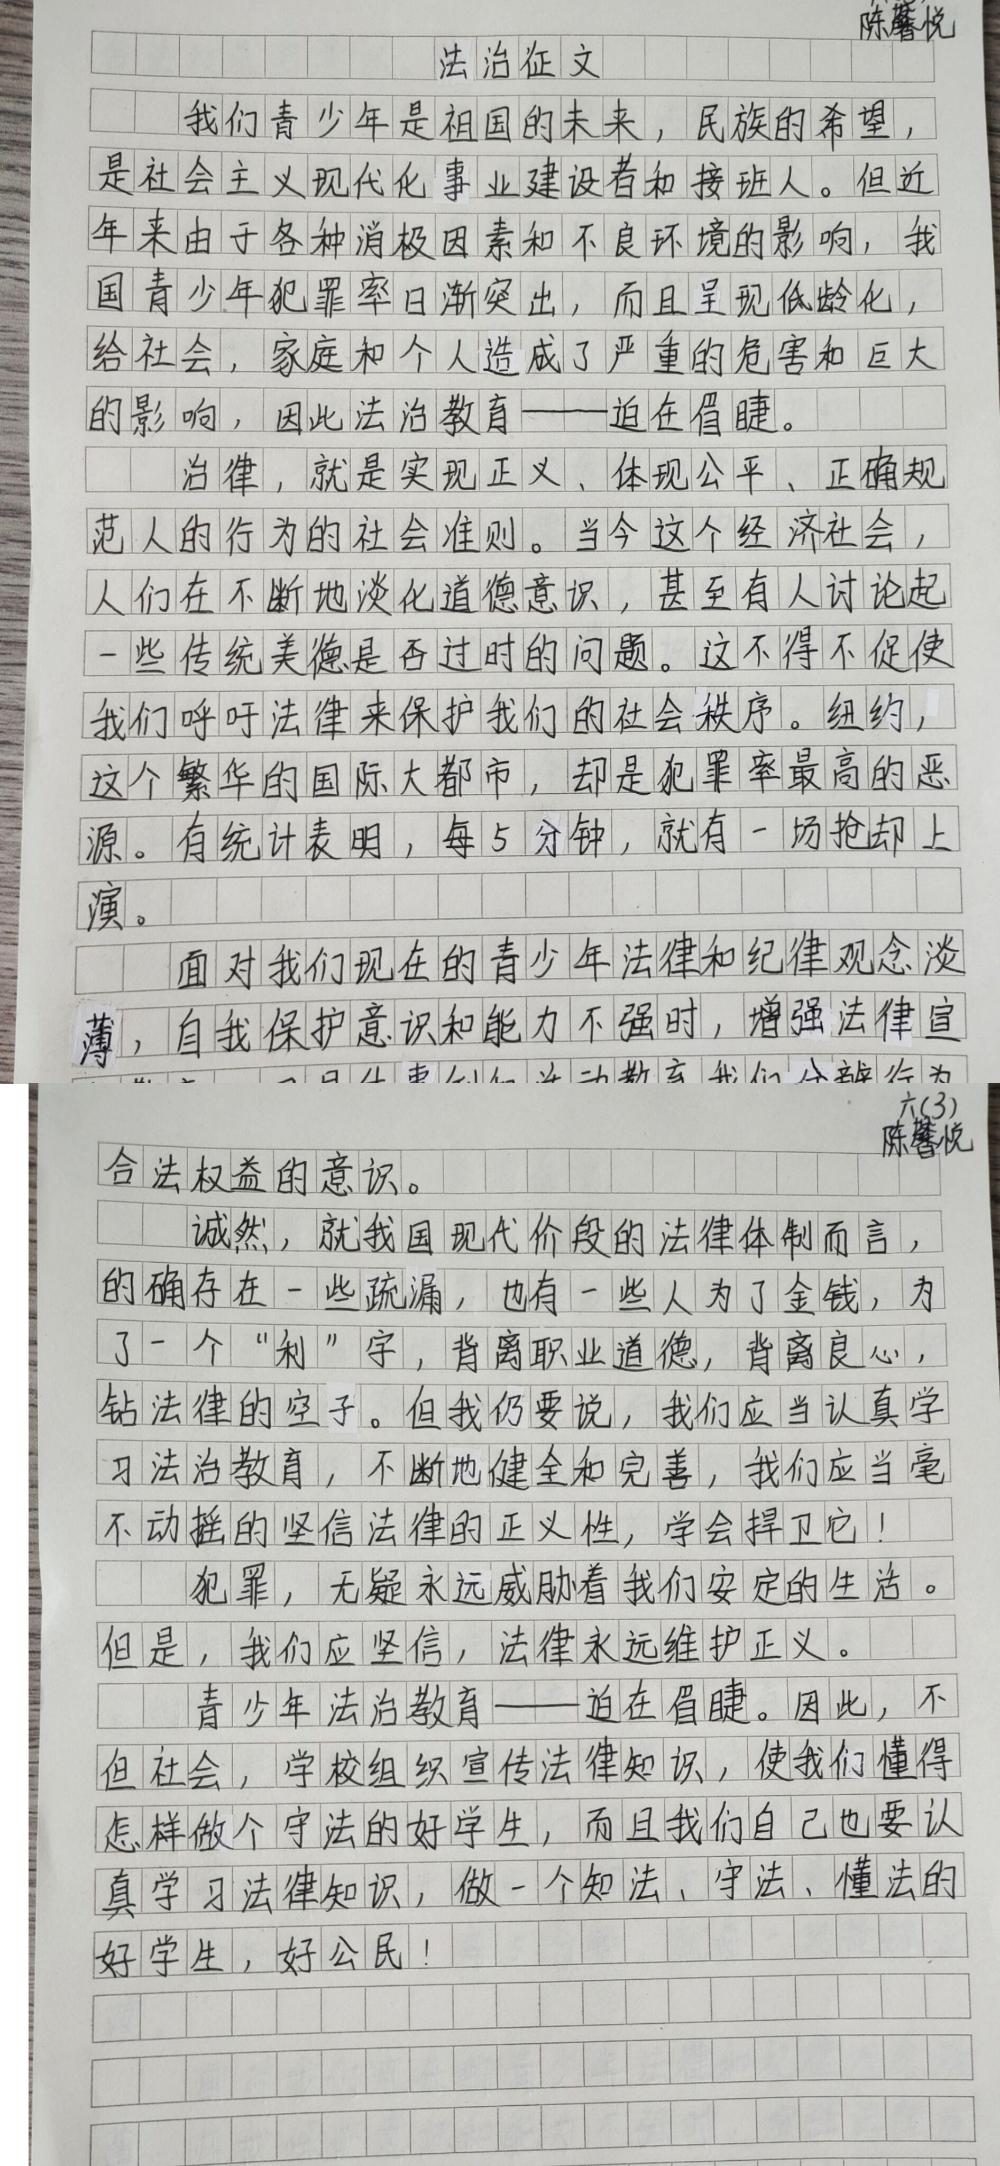 陈馨悦
法治征文
我们青少年是祖国的未来，民族的希望，
是社会主义现代化事业建设者和接班人。但近
年来由于各种消极因素和不良环境的影响，我
国青少年犯罪率日渐突出，而且呈现低龄化，
给社会，家庭和个人造成了严重的危害和巨大
的影响，因此法治教育——迫在眉睫。
治律，就是实现正义、体现公平、正确规
范人的行为的社会准则。当今这个经济社会，
人们在不断地淡化道德意识，甚至有人讨论起
一些传统美德是否过时的问题。这不得不促使
我们呼吁法律来保护我们的社会秩序。纽约，
这个繁华的国际大都市，却是犯罪率最高的恶
源。有统计表明，每5分钟，就有一场抢却上
演。
面对我们现在的青少年法律和纪律观念淡
薄，自我保护意识和能力不强时，增强法律宣
事例 教育我们分辨行为
六(3)
陈馨悦
合法权益的意识。
诚然，就我国现代价段的法律体制而言，
的确存在一些疏漏，也有一些人为了金钱，为
了一个“利”字，背离职业道德，背离良心，
钻法律的空子。但我仍要说，我们应当认真学
习法治教育，不断地健全和完善，我们应当毫
不动摇的坚信法律的正义性，学会捍卫它！
犯罪，无疑永远威胁着我们安定的生活。
但是，我们应坚信，法律永远维护正义。
青少年法治教育——迫在眉睫。因此，不
但社会，学校组织宣传法律知识，使我们懂得
怎样做个守法的好学生，而且我们自己也要认
真学习法律知识，做一个知法、守法、懂法的
好学生，好公民！